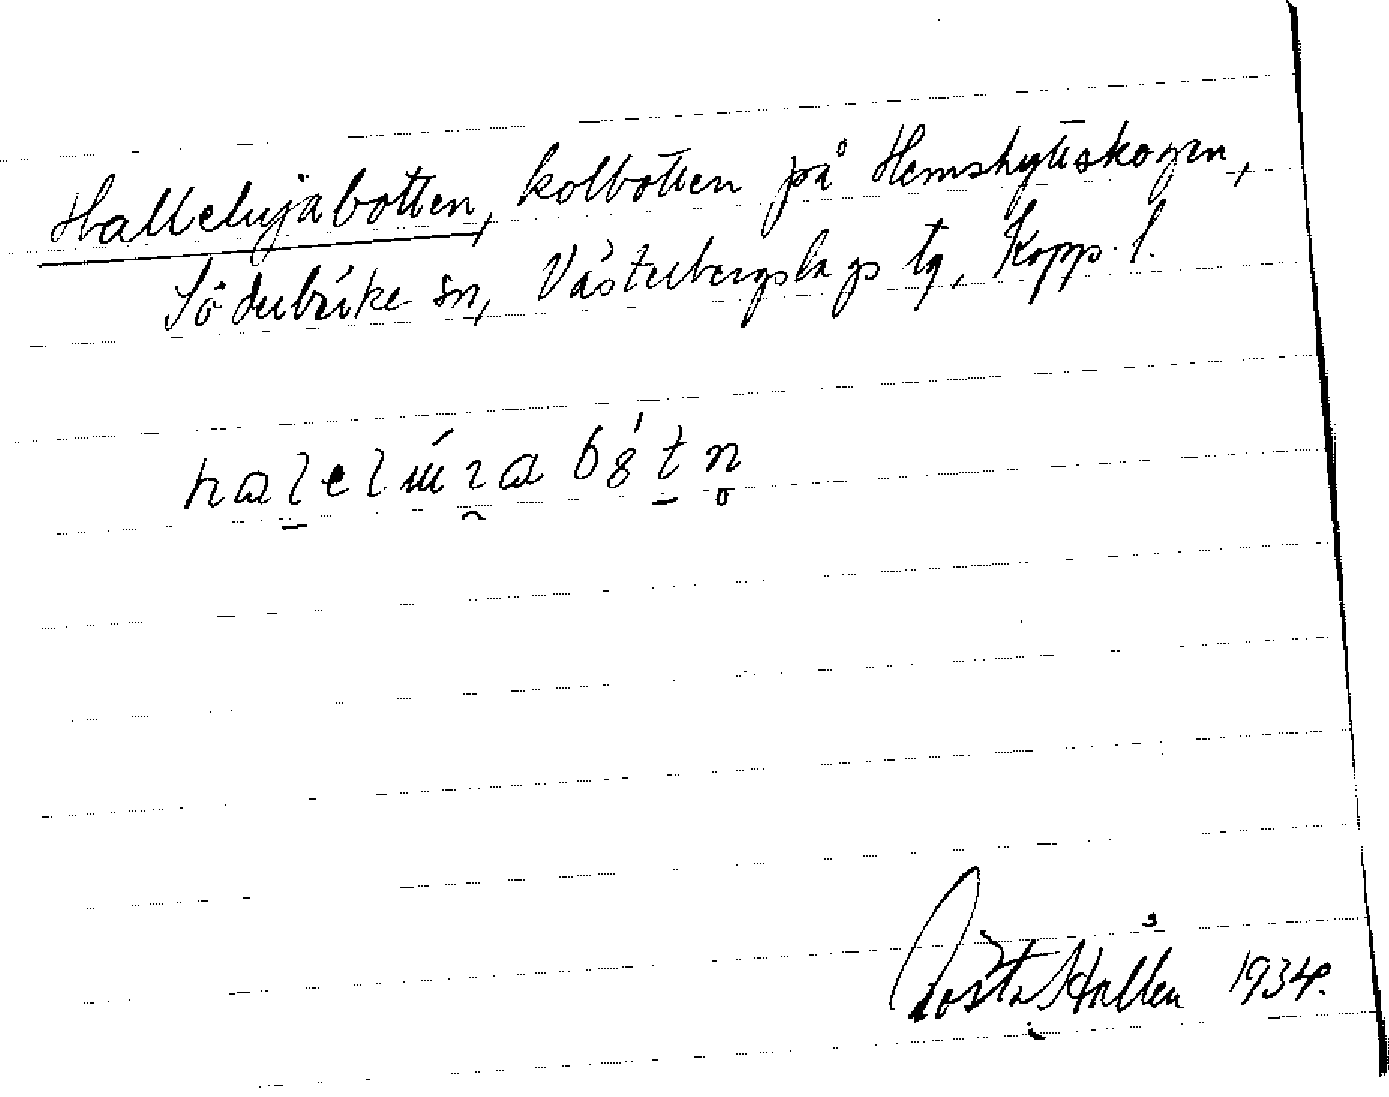 Hallelujabotten, kolbotten på Hemshyttskogen,
Söderbärke sn, Västerbergslags tg, Kopp. l.
Gösta Hallén 1934.